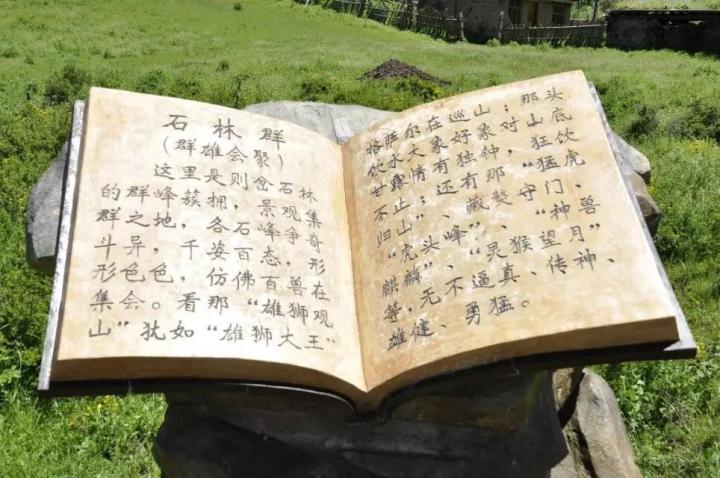 石林群
(群雄会聚)
这里是则岔石林
的群峰簇拥，景观集
群之地，各石峰争奇
斗异，千姿百态，形
形色色，仿佛百兽在
集会。看那“雄狮观
山”犹如“雄狮大王”
格萨尔在巡山；那头
饮水大象好象对山底
甘露情有独钟，狂饮
不止；还有那“猛虎
归山”、藏獒守门、
“虎头峰”、“神兽
麒麟”、“灵猴望月”
等，无不逼真、传神、
雄健、勇猛。